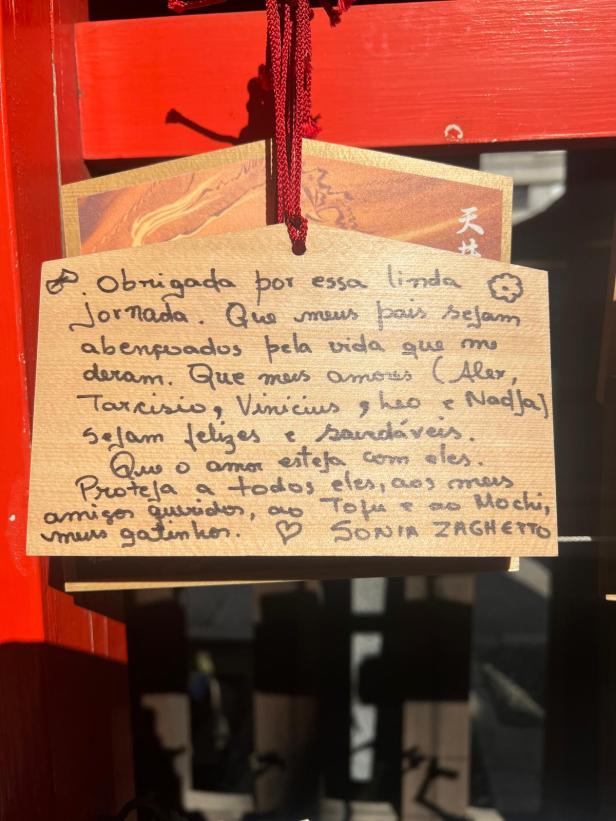 天
Obrigada por essa linda
jornada. Que meus pais sejam
abençoados pela vida que me
deram. Que meus amores (Alex,
Tarcisio, Vinicius, Leo e Nadja)
sejam felizes e saudáveis.
Que o amor esteja com eles.
Proteja a todos eles, aos meus
amigos queridos, ao Tofu e ao Mochi,
meus gatinhos. ♡ SONIA ZAGHETTO